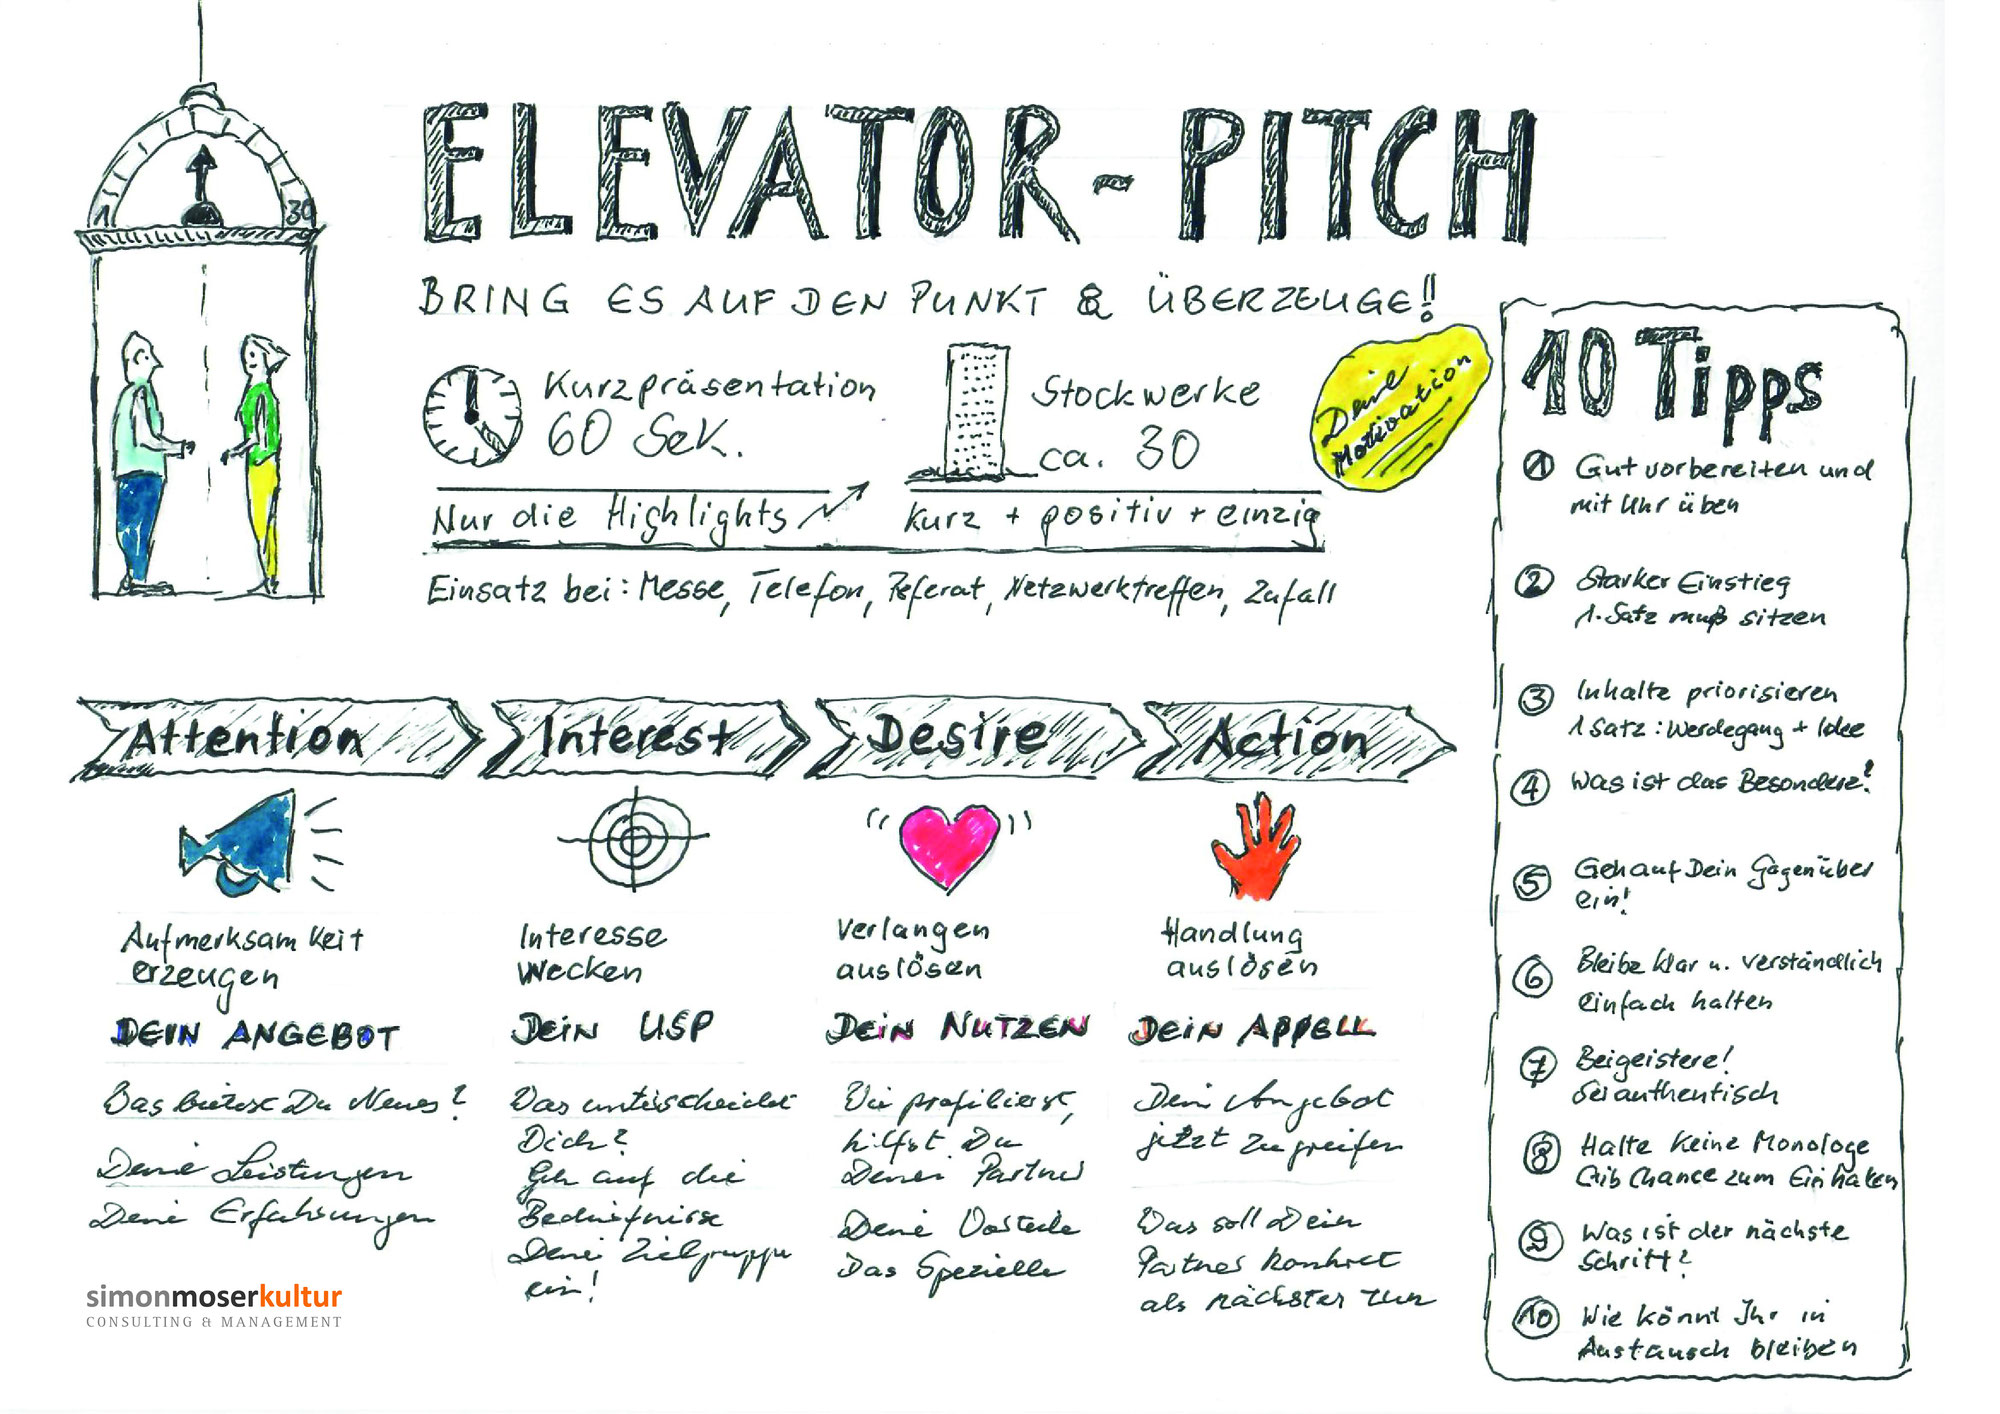 1
30
ELEVATOR-PITCH
BRING ES AUF DEN PUNKT & ÜBERZEUGE!!
Kurzpräsentation
60 Sek.
Stockwerke
ca. 30
Deine
Motivation
Nur die Highlights
kurz + positiv + einzig
Einsatz bei: Messe, Telefon, Referat, Netzwerktreffen, Zufall
Attention
Aufmerksamkeit
erzeugen
DEIN ANGEBOT
Was bietest Du Neues?
Deine Leistungen
Deine Erfahrungen
Interest
Interesse
wecken
DEIN USP
Was unterscheidet
Dich?
Geh auf die
Bedürfnisse
Deine Zielgruppe
ein!
Desire
Verlangen
auslösen
DEIN NUTZEN
Wie profilierst,
hilfst Du
Deinen Partner
Deine Vorteile
Das Spezielle
Action
Handlung
auslösen
DEIN APPELL
Dein Angebot
jetzt zugreifen
Was soll Dein
Partner konkret
als nächster tun
10 Tipps
1 Gut vorbereiten und
mit Uhr üben
2 Starker Einstieg
1. Satz muß sitzen
3 Inhalte priorisieren
1 Satz: Werdegang + Idee
4 Was ist das Besondere?
5 Geh auf Dein Gegenüber
ein!
6 Bleibe klar u. verständlich
einfach halten
7 Beigeistere!
Sei authentisch
8 Halte keine Monologe
Gib Chance zum Einhaken
9 Was ist der nächste
Schritt?
10 Wie könnt Ihr in
Austausch bleiben
simonmoserkultur
CONSULTING & MANAGEMENT